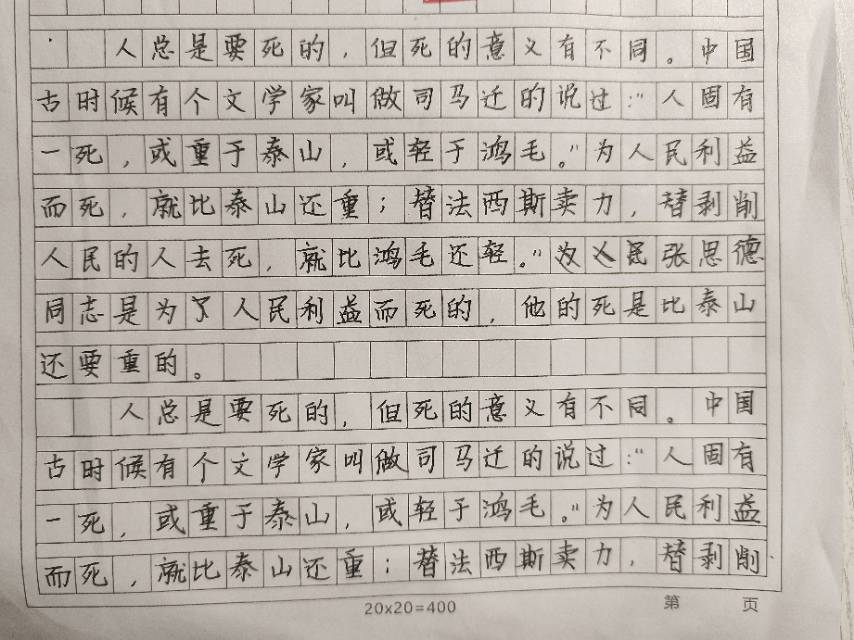 人总是要死的，但死的意义有不同。中国
古时候有个文学家叫做司马迁的说过：“人固有
一死，或重于泰山，或轻于鸿毛。”为人民利益
而死，就比泰山还重；替法西斯卖力，替剥削
人民的人去死，就比鸿毛还轻。”张思德
同志是为了人民利益而死的，他的死是比泰山
还要重的。
人总是要死的，但死的意义有不同。中国
古时候有个文学家叫做司马迁的说过：“人固有
一死，或重于泰山，或轻于鸿毛。”为人民利益
而死，就比泰山还重；替法西斯卖力，替剥削
20×20=400 第 页